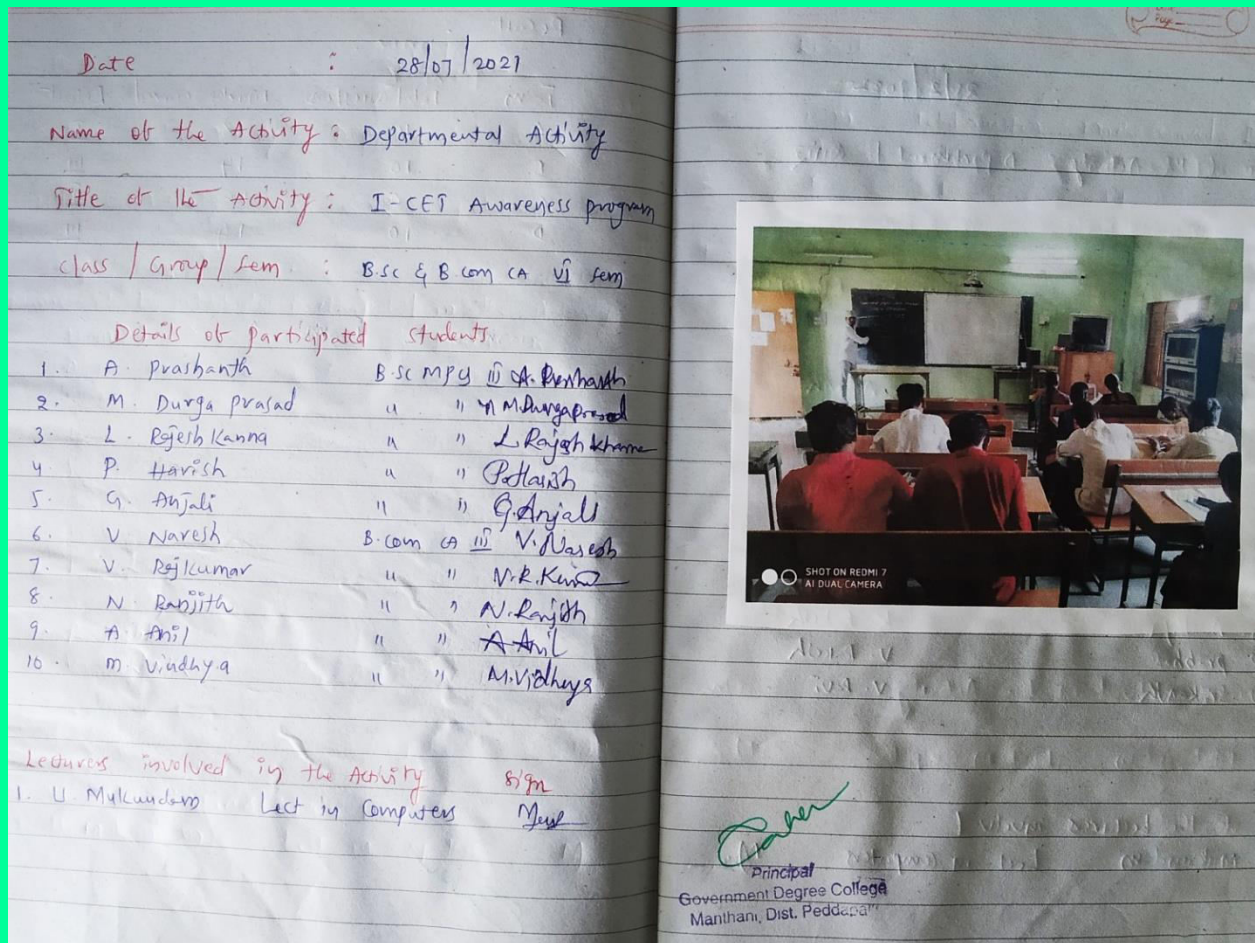 Date : 28/07/2021
Name of the Activity : Departmental Activity
Title of the Activity : I-CET Awareness program
Class / Group / Sem : B.sc & B.com CA VI Sem
Details of participated Students
1. A. Prashanth B.sc MPCs III A. Prashanth
2. M. Durga prasad " " " M.Durgaprasad
3. L. Rajesh Kanna " " L.Rajesh khanna
4 P. Harish " " P.Harish
5. G. Anjali " " G.Anjali
6. V. Naresh B.com CA III V.Naresh
7. V. Rajkumar " " V.R.Kumar
8. N. Ranjith " " N.Ranjith
9. A. Anil " " A Anil
10. M. Vindhya " " M.Vidhya
Lecturers involved in the Activity Sign
1. U. Mukundam Lect in Computers
SHOT ON REDMI 7
AI DUAL CAMERA
Principal
Government Degree College
Manthani, Dist.